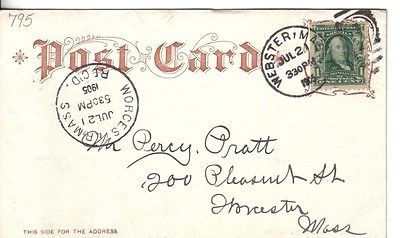 795
Post Card
WEBSTER, M
JUL 21
330P
WORCESTER, MASS.
JUL 21
530PM
1905
REC'D.
Mr Percy. Pratt
200 Pleasant St
Worcester
Mass
THIS SIDE FOR THE ADDRESS.